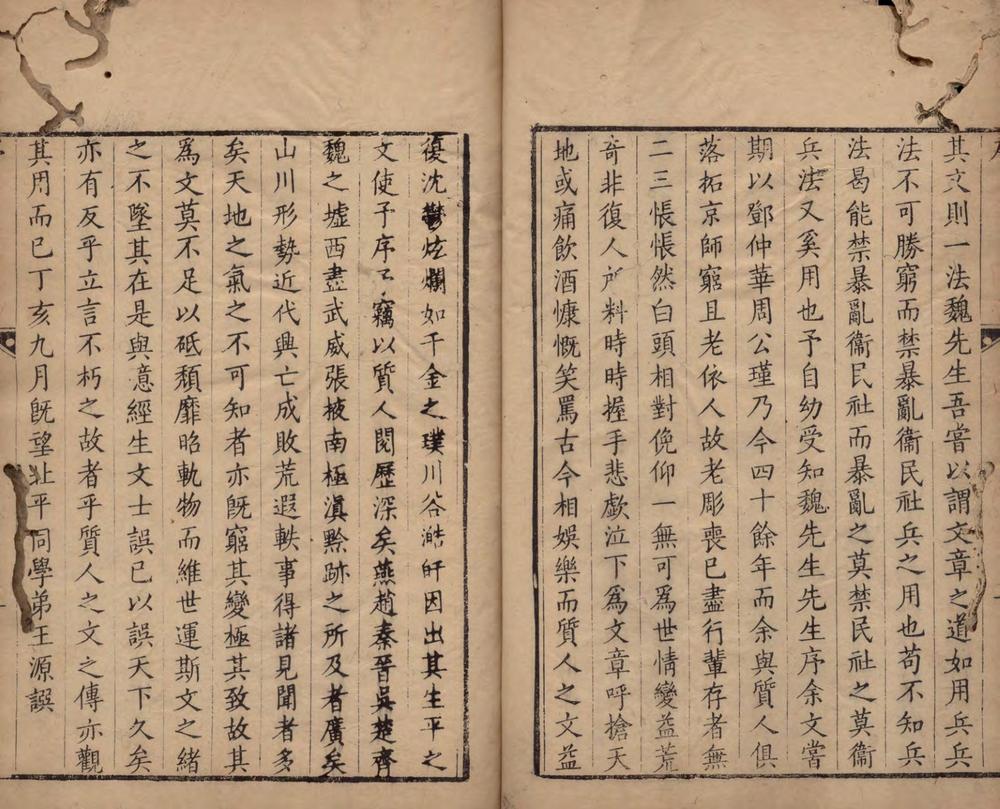 其文則一法魏先生吾嘗以謂文章之道如用兵兵
法不可勝窮而禁暴亂衞民社兵之用也苟不知兵
法曷能禁暴亂衞民社而暴亂之莫禁民社之莫衞
兵法又奚用也予自幼受知魏先生先生序余文嘗
期以鄧仲華周公瑾乃今四十餘年而余與質人俱
落拓京師窮且老依人故老彫喪已盡行輩存者無
二三悵悵然白頭相對俛仰一無可爲世情變益荒
奇非復人所料時時握手悲歔泣下爲文章呼搶天
地或痛飲酒慷慨笑罵古今相娛樂而質人之文益
復沈鬱炫爛如千金之璞川谷澔汗因出其生平之
文使予序予竊以質人閱歷深矣燕趙秦晉吳楚齊
魏之墟西盡武威張掖南極滇黔跡之所及者廣矣
山川形勢近代興亡成敗荒遐軼事得諸見聞者多
矣天地之氣之不可知者亦旣窮其變極其致故其
爲文莫不足以砥頹靡昭軌物而維世運斯文之緒
之不墜其在是與意經生文士誤已以誤天下久矣
亦有反乎立言不朽之故者乎質人之文之傳亦觀
其用而已丁亥九月旣望北平同學弟王源譔